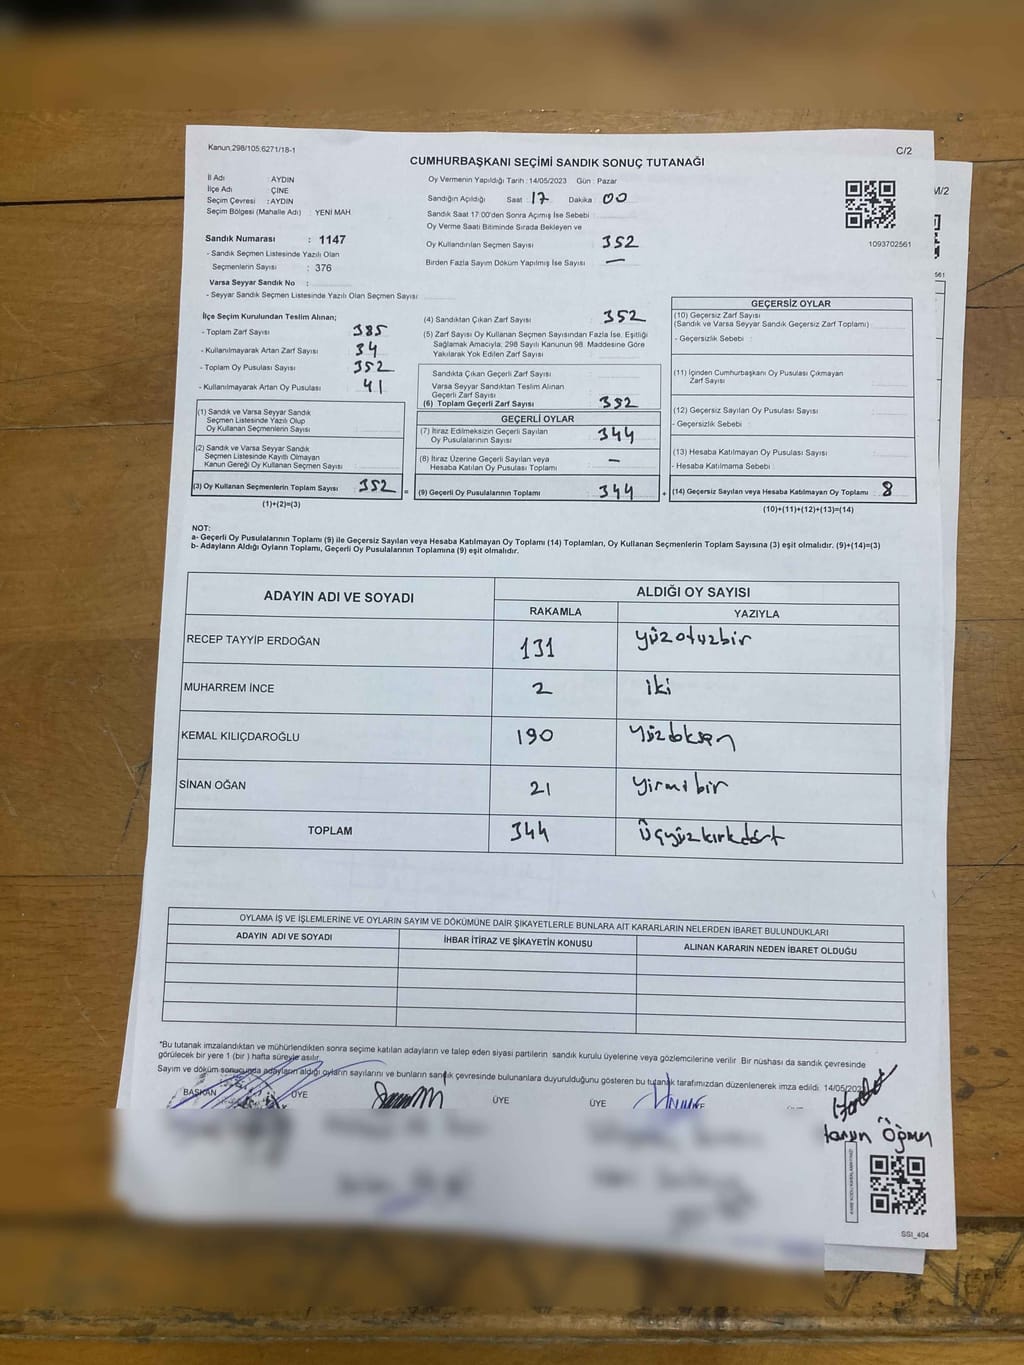 Kanun,298/105,6271/18-1
C/2
M/2
CUMHURBAŞKANI SEÇİMİ SANDIK SONUÇ TUTANAĞI
İl Adı : AYDIN
İlçe Adı : ÇİNE
Seçim Çevresi : AYDIN
Seçim Bölgesi (Mahalle Adı) : YENİ MAH.
Sandık Numarası : 1147
- Sandık Seçmen Listesinde Yazılı Olan
Seçmenlerin Sayısı : 376
Varsa Seyyar Sandık No :
- Seyyar Sandık Seçmen Listesinde Yazılı Olan Seçmen Sayısı
Oy Vermenin Yapıldığı Tarih : 14/05/2023 Gün : Pazar
Sandığın Açıldığı Saat : 17 Dakika : 00
Sandık Saat 17:00'den Sonra Açımış İse Sebebi :
Oy Verme Saati Bitiminde Sırada Bekleyen ve
Oy Kullandırılan Seçmen Sayısı 352
Birden Fazla Sayım Döküm Yapılmış İse Sayısı —
1093702561
561
İlçe Seçim Kurulundan Teslim Alınan;
- Toplam Zarf Sayısı 385
- Kullanılmayarak Artan Zarf Sayısı 34
- Toplam Oy Pusulası Sayısı 352
- Kullanılmayarak Artan Oy Pusulası 41
(1) Sandık ve Varsa Seyyar Sandık
Seçmen Listesinde Yazılı Olup
Oy Kullanan Seçmenlerin Sayısı
(2) Sandık ve Varsa Seyyar Sandık
Seçmen Listesinde Kayıtlı Olmayan
Kanun Gereği Oy Kullanan Seçmen Sayısı
(3) Oy Kullanan Seçmenlerin Toplam Sayısı 352
(1)+(2)=(3)
(4) Sandıktan Çıkan Zarf Sayısı 352
(5) Zarf Sayısı Oy Kullanan Seçmen Sayısından Fazla İse, Eşitliği
Sağlamak Amacıyla; 298 Sayılı Kanunun 98. Maddesine Göre
Yakılarak Yok Edilen Zarf Sayısı
Sandıkta Çıkan Geçerli Zarf Sayısı
Varsa Seyyar Sandıktan Teslim Alınan
Geçerli Zarf Sayısı
(6) Toplam Geçerli Zarf Sayısı 352
GEÇERLİ OYLAR
(7) İtiraz Edilmeksizin Geçerli Sayılan
Oy Pusulalarının Sayısı 344
(8) İtiraz Üzerine Geçerli Sayılan veya
Hesaba Katılan Oy Pusulası Toplamı —
= (9) Geçerli Oy Pusulalarının Toplamı 344
GEÇERSİZ OYLAR
(10) Geçersiz Zarf Sayısı
(Sandık ve Varsa Seyyar Sandık Geçersiz Zarf Toplamı)
- Geçersizlik Sebebi :
(11) İçinden Cumhurbaşkanı Oy Pusulası Çıkmayan
Zarf Sayısı
(12) Geçersiz Sayılan Oy Pusulası Sayısı
- Geçersizlik Sebebi :
(13) Hesaba Katılmayan Oy Pusulası Sayısı
- Hesaba Katılmama Sebebi :
+ (14) Geçersiz Sayılan veya Hesaba Katılmayan Oy Toplamı 8
(10)+(11)+(12)+(13)=(14)
NOT:
a- Geçerli Oy Pusulalarının Toplamı (9) ile Geçersiz Sayılan veya Hesaba Katılmayan Oy Toplamı (14) Toplamları, Oy Kullanan Seçmenlerin Toplam Sayısına (3) eşit olmalıdır. (9)+(14)=(3)
b- Adayların Aldığı Oyların Toplamı, Geçerli Oy Pusulalarının Toplamına (9) eşit olmalıdır.
ADAYIN ADI VE SOYADI ALDIĞI OY SAYISI
RAKAMLA YAZIYLA
RECEP TAYYİP ERDOĞAN 131 yüzotuzbir
MUHARREM İNCE 2 iki
KEMAL KILIÇDAROĞLU 190 yüzdoksan
SİNAN OĞAN 21 yirmibir
TOPLAM 344 üçyüzkırkdört
OYLAMA İŞ VE İŞLEMLERİNE VE OYLARIN SAYIM VE DÖKÜMÜNE DAİR ŞİKAYETLERLE BUNLARA AİT KARARLARIN NELERDEN İBARET BULUNDUKLARI
ADAYIN ADI VE SOYADI İHBAR İTİRAZ VE ŞİKAYETİN KONUSU ALINAN KARARIN NEDEN İBARET OLDUĞU
*Bu tutanak imzalandıktan ve mühürlendikten sonra seçime katılan adayların ve talep eden siyasi partilerin sandık kurulu üyelerine veya gözlemcilerine verilir. Bir nüshası da sandık çevresinde
görülecek bir yere 1 (bir ) hafta süreyle asılır.
Sayım ve döküm sonucunda adayların aldığı oyların sayılarını ve bunların sandık çevresinde bulunanlara duyurulduğunu gösteren bu tutanak tarafımızdan düzenlenerek imza edildi. 14/05/202
BAŞKAN ÜYE ÜYE ÜYE
SSI_404